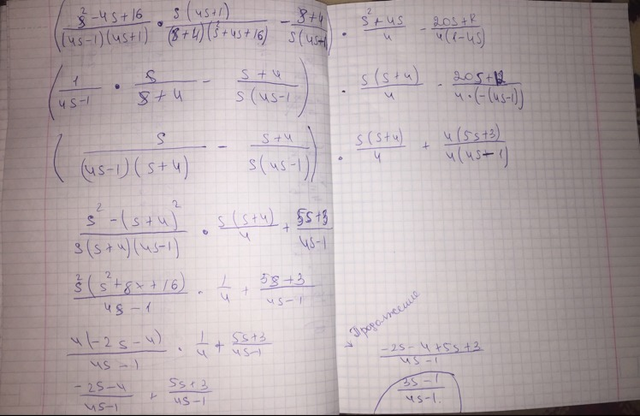 (s²-4s+16/(4s-1)(4s+1) · s(4s+1)/(s+4)(s²-4s+16) - s+4/s(4s-1)) · s²+4s/4 - 20s+12/4(1-4s)
(1/4s-1 · s/s+4 - s+4/s(4s-1)) · s(s+4)/4 - 20s+12/4·(-(4s-1))
(s/(4s-1)(s+4) - s+4/s(4s-1)) · s(s+4)/4 + 4(5s+3)/4(4s-1)
s²-(s+4)²/s(s+4)(4s-1) · s(s+4)/4 + 5s+3/4s-1
s²(s²+8x+16)/4s-1 · 1/4 + 5s+3/4s-1
4(-2s-4)/4s-1 · 1/4 + 5s+3/4s-1
-2s-4/4s-1 + 5s+3/4s-1
→ Продолжение
-2s-4+5s+3/4s-1
3s-1/4s-1.